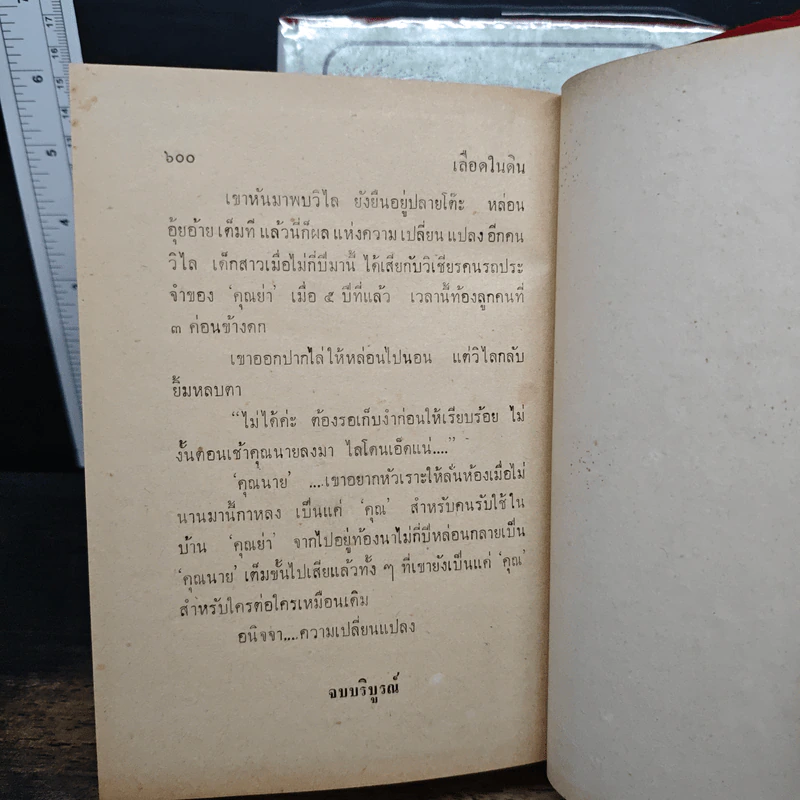 ๖๐๐ เลือดในดิน
เขาหันมาพบวิไล ยังยืนอยู่ปลายโต๊ะ หล่อน
อุ้ยอ้าย เต็มที แล้วนี่ก็ผล แห่งความ เปลี่ยน แปลง อีกคน
วิไล เด็กสาวเมื่อไม่กี่ปีมานี้ ได้เสียกับวิเชียรคนรถประ
จำของ 'คุณย่า' เมื่อ ๕ ปีที่แล้ว เวลานี้ท้องลูกคนที่
๓ ค่อนข้างดก
เขาออกปากไล่ให้หล่อนไปนอน แต่วิไลกลับ
ยิ้มหลบตา
"ไม่ได้ค่ะ ต้องรอเก็บงำก่อนให้เรียบร้อย ไม่
งั้นตอนเช้าคุณนายลงมา ไลโดนเอ็ดแน่...."
'คุณนาย' ....เขาอยากหัวเราะให้ลั่นห้องเมื่อไม่
นานมานี้กาหลง เป็นแค่ 'คุณ' สำหรับคนรับใช้ใน
บ้าน 'คุณย่า' จากไปอยู่ท้องนาไม่กี่ปีหล่อนกลายเป็น
'คุณนาย' เต็มขั้นไปเสียแล้วทั้ง ๆ ที่เขายังเป็นแค่ 'คุณ'
สำหรับใครต่อใครเหมือนเดิม
อนิจจา,...ความเปลี่ยนแปลง
จบบริบูรณ์
17
7
16
6
15
5
4